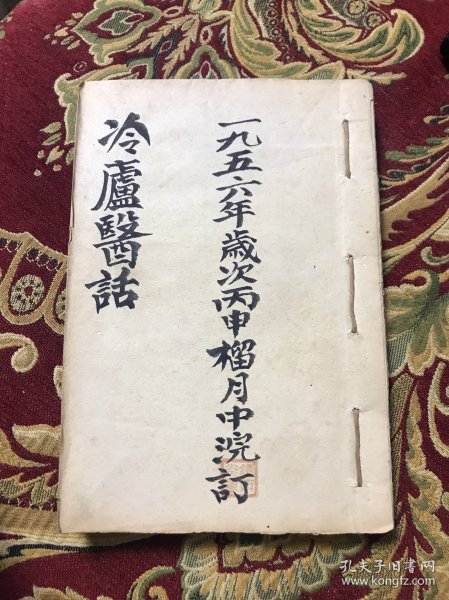 一九五六年歲次丙申榴月中浣訂
冷廬醫話
孔夫子旧書网
www.kongfz.com